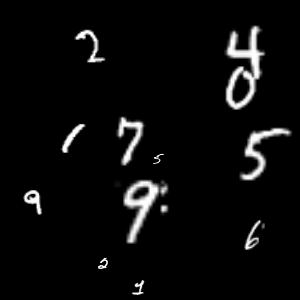 2 4
0
1 7 5 5
9 9
6
2
1